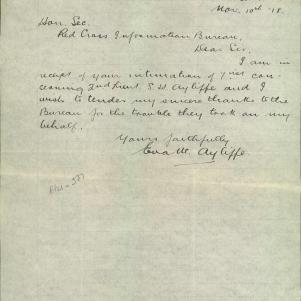 Nov. 10th '18.
Hon. Sec.
Red Cross Information Bureau,
Dear Sir,
I am in
receipt of your intimation of 7 inst con-
cerning 2nd Lieut. S. H. Ayliffe and I
wish to tender my sincere thanks to the
Bureau for the trouble they took on my
behalf.
Yours faithfully
Eva M. Ayliffe